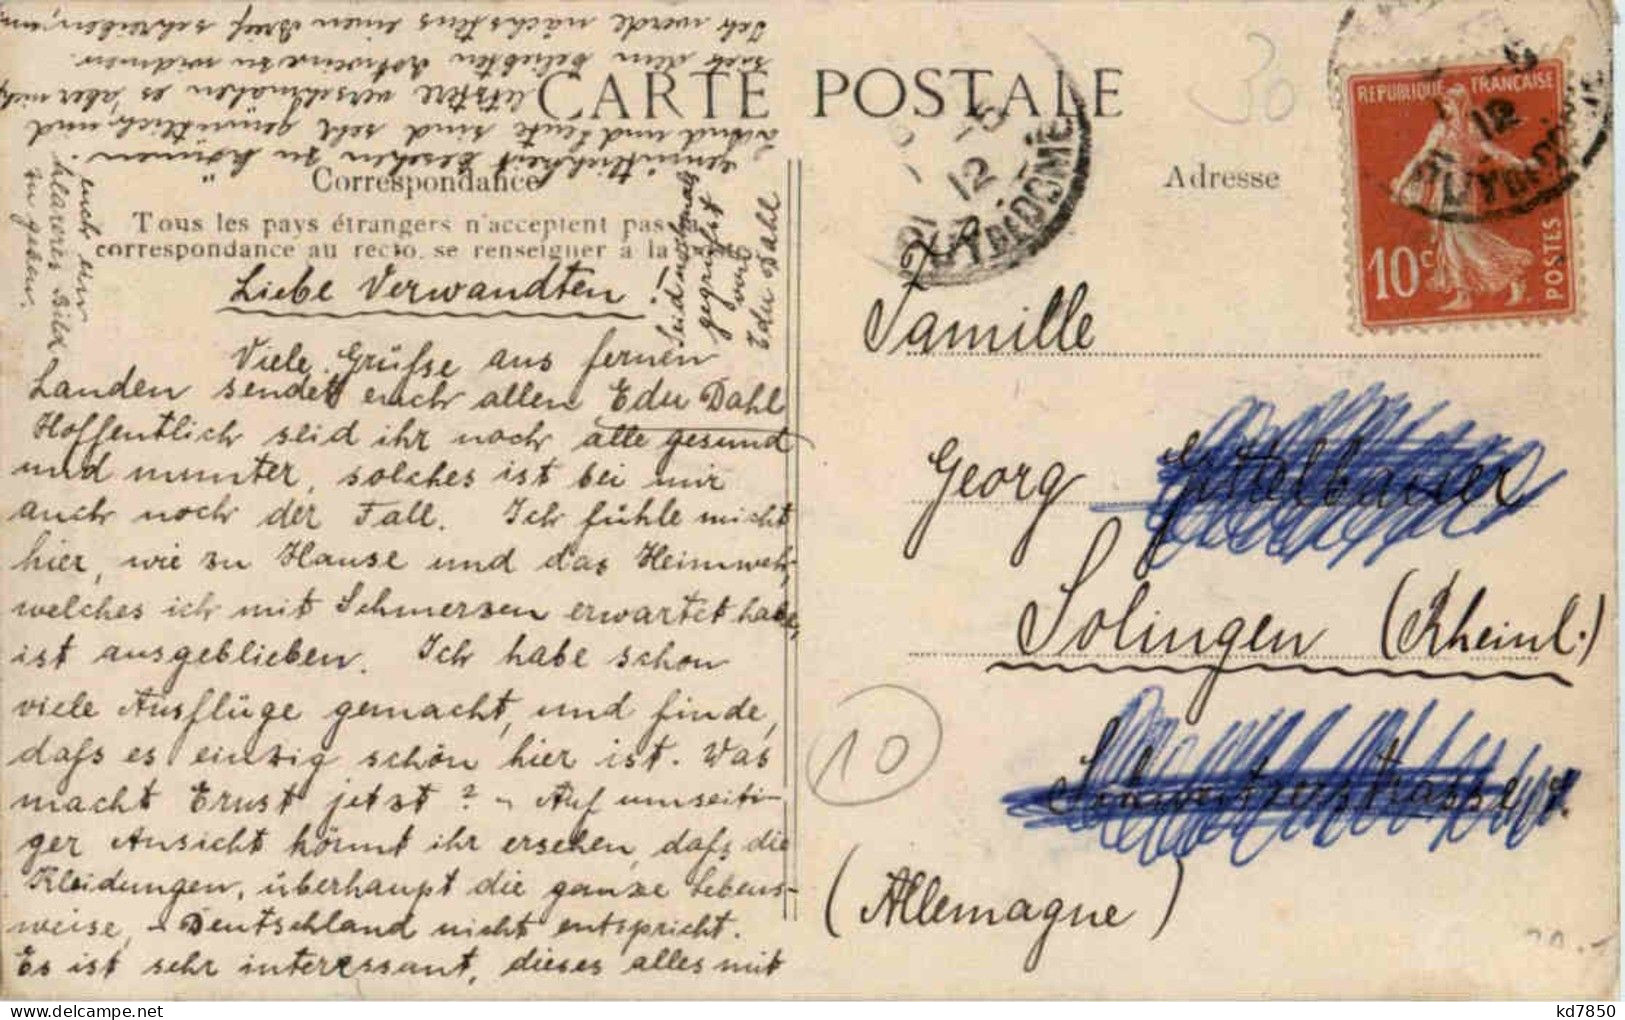 CARTE POSTALE
Correspondance
Adresse
Tous les pays étrangers n'acceptent pas
correspondance au recto. se renseigner à la
Liebe Verwandten!
Viele Grüfse aus fernen
Landen sendet euch allen Edu Dahl
Hoffentlich seid ihr noch alle gesund
und munter, solches ist bei mir
auch noch der Fall. Ich fühle mich
hier, wie zu Hause und das Heimweh,
welches ich mit Schmerzen erwartet habe,
ist ausgeblieben. Ich habe schon
viele Ausflüge gemacht, und finde,
dafs es einzig schön hier ist. Was
macht Ernst jetzt? - Auf umseiti-
ger Ansicht könnt ihr ersehen, dafs die
Kleidungen, überhaupt die ganze Lebens-
weise, Deutschland nicht entspricht.
Es ist sehr interessant, dieses alles mit
Gemütlichkeit besehen zu können.
und Leute sind sehr gemütlich und
letztere verschmähen es aber nicht
sich dem beliebten Rotweine zu widmen.
Ich werde nächstens einen Brief schreiben, um
euch ein
klareres Bild
zu geben.
Seid nochmals
gegrüßt
von
Edu Dahl
Famille
Georg
Solingen (Rheinl.)
(Allemagne)
REPUBLIQUE FRANÇAISE
10c
POSTES
12
PUY-DE-DOME
12
PUY-DE-DOME
30
10
kd7850